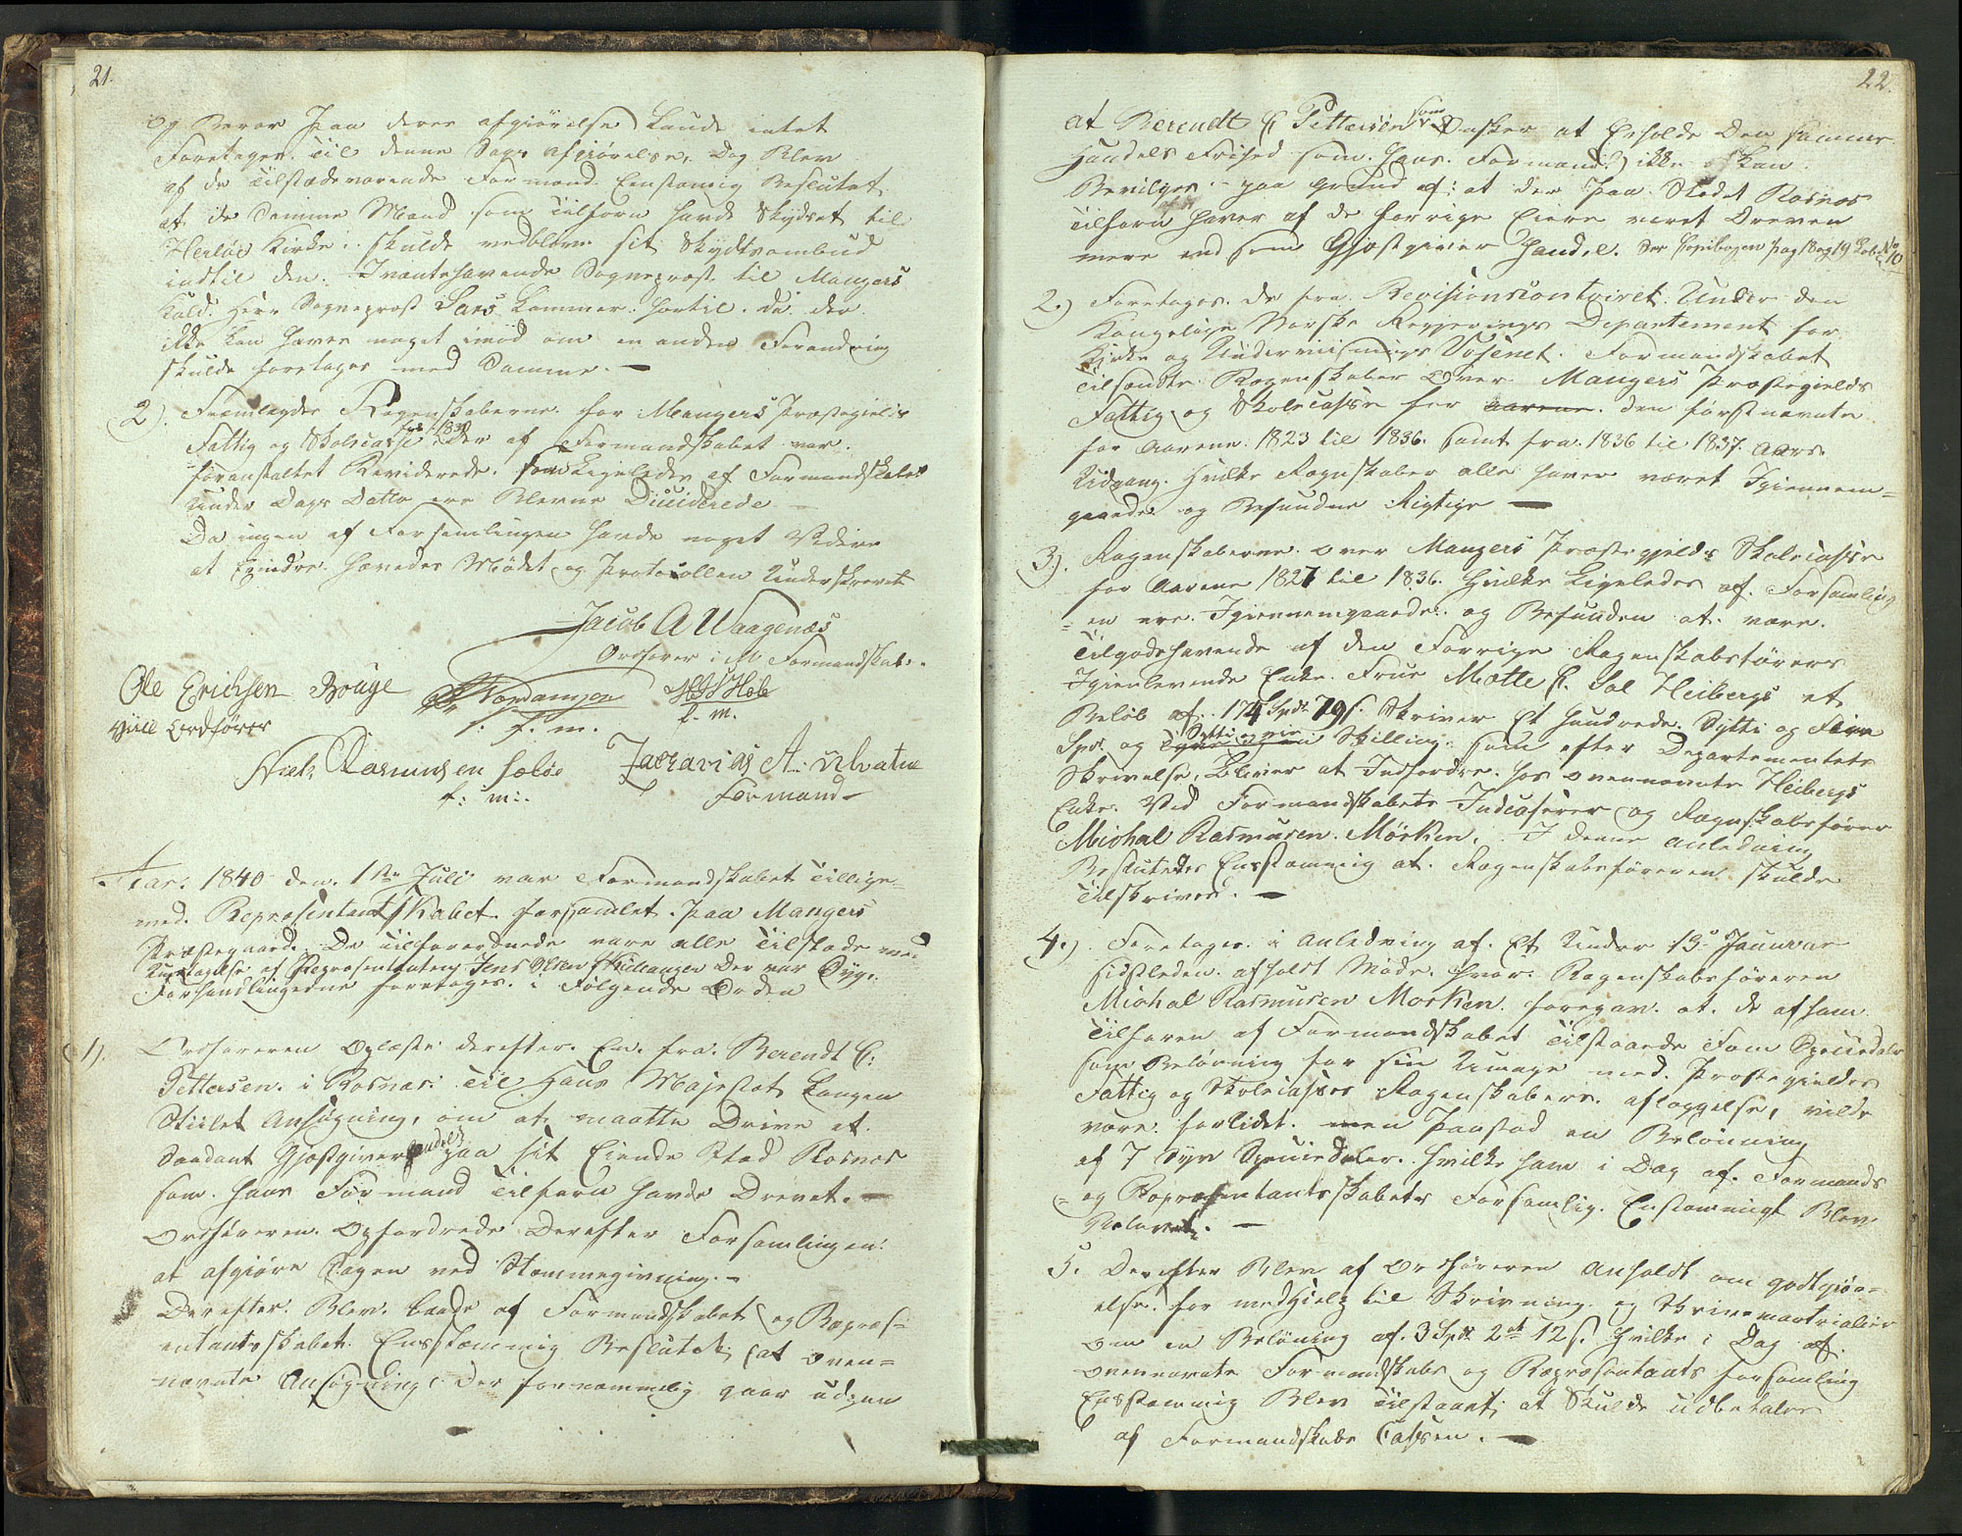 21.
og Beroe paa deres afgiørelse kunde intet
Foretages til denne Sags Afgiørelse. Dog Blev
af de tilstædeværende Formænd Eenstæmig Besluttet
at de Samme Mænd som tilforn havde Skydset til
Herløe Kirke: skulde vedblive sit Skydsombud
indtil den Iventehavende Sogneprest til Mangers
Kald Herr Sogneprest Sars kommer hertil. da der
ikke kan haves noget imod om en anden Forandring
skulde foretages med Samme. —
2). Fremlagdes Regenskaberne for Mangers Præstegields
Fattig og Skolecasse for 1839 der af Formandskabet var
foranstaltet Reviderede. som Ligeledes af Formandskabet
Under Dags Datto ere Blevne Diciderede —
Da ingen af Forsamlingen havde noget Videre
at Erindre hævedes Mødet og Protocollen Underskrevet
Jacob A Waagenæs
Ordfører i M Formandskab.
Ole Erichsen Bouge
Viice Ordfører
f. m.
f. m.
Niels Rasmusen Sæløe
f: m:.
Zacharias A.
Formand
Aar: 1840 den 1ste Juli var Formandskabet Tillige-
med Repræsentantskabet forsamlet paa Mangers
Præstegaard. De tilforordnede vare alle tilstæde med
Undtagelse af Repræsentanten Jens Olsen Skillangen Der var Syg.
Forhandlingerne foretoges i Følgende Orden
1). Ordføreren Oplæste derefter En fra Berendt E:
Pettersen i Rosnæs til Hans Majestæt Kongen
Stiilet Ansøgning, om at maatte Drive et
Saadant Gjæstgiver handel paa sit Eiende Sted Rosnæs
som hans Formand tilforn havde Drevet. —
Ordføreren Opfordrede Derefter Forsamlingen
at afgiøre Sagen ved Stemmegivning. —
Derefter Blev baade af Formandskabet og Repræs-
entantskabet Eenstæmmig Besluttet, at oven-
nævnte Ansøgning Der fornæmmelig gaar udpaa
22.
at Berendt E Pettersen som Ønsker at Erholde Den samme
Handels Frihed som hans Formand, ikke kan
Bevilges — paa grund af: at der paa Stedet Rosnæs
tilforn haver af de forrige Eiere været Dreven
mere end som Gjæstgiver Handel. See Copibogen Pag 18 og 19 Løb No 10
2.) Foretages de fra Revisionscontoiret Under den
Kongelige Norske Regjerings Departement for
Kirke og Underviisnings Væsenet. Formandskabet
tilsendte Regenskaber Over Mangers Præstegields
Fattig og Skolecasse for aarene. den førstnævnte
for Aarene 1823 til 1836. samt fra 1836 til 1837 Aars
Udgang. Hvilke Regnskaber alle haver været Igiennem-
gaaede og Befundne Rigtige —
3). Regenskaberne over Mangers Præstegjelds Skolecasse
for Aarene 1827 til 1836. Hvilke Ligeledes af Forsamling
en ere Igiennemgaaede og Befunden at være
tilgodehavende af den Forrige Regenskabsførers
Igienlevende Enke Frue Mætte E. Sal Heibergs et
Beløb af 174 Spdr 79 s. Skriver Et Hundrede Sytti og Fiire
Spd. og Sytti og nie Skilling. som efter Departementets
Skrivelse, Bliver at Indfordre hos ovennævnte Heibergs
Enke Ved Formandskabets Indcaserer og Regnskabsfører
Michal Rasmusen Mørken. I denne anledning
Besluttedes Eenstæmmig at Regenskabsføreren skulde
tilskrives. —
4.) Foretages i anledning af Et Under 13de Januar
sidstleden afholdt Møde. hvor Regenskabsføreren
Michal Rasmusen Morken foregav at de af ham
tilforen af Formandskabet tilstaaede Fem Speciedaler
som Belønning for sin Umage med Præstegieldes
Fattig og Skolecasses Regenskabers aflæggelse, vilde
være forlidet. men Paastod en Belønning
af 7 syv Speciedaler. hvilke ham i Dag af Formands
= og Repræsentantskabets Forsamling Enstæmmigt Blev
Vedtaget. —
5. Derefter Blev af Ordføreren anholdt om godtgiør-
else for medhielp til Skrivning og Skrivematrialier
om en Belønning af 3 Spd 2 ort 12 s. hvilke i Dag af
ovennævnte Formandskabs og Repræsentants forsamling
Eenstæmmig Blev tilstaaet, at Skulde udbetales
af Formandskabs Cassen. —